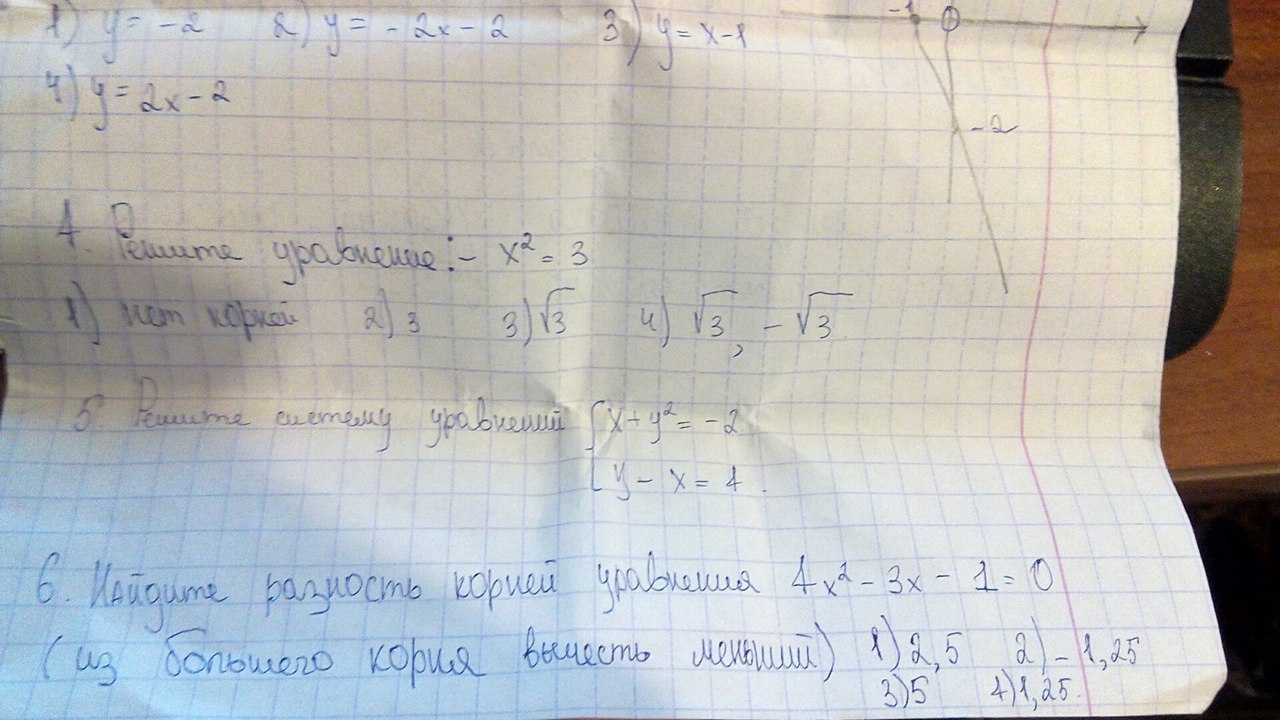 1) y = -2 2) y = - 2x - 2 3) y = x - 1
-1 0
4) y = 2x - 2
-2
4. Решите уравнение: - x² = 3
1) нет корней 2) 3 3) √3 4) √3, - √3
5. Решите систему уравнений { x + y² = -2
y - x = 4.
6. Найдите разность корней уравнения 4x² - 3x - 1 = 0
(из большего корня вычесть меньший) 1) 2,5 2) - 1,25
3) 5 4) 1,25.